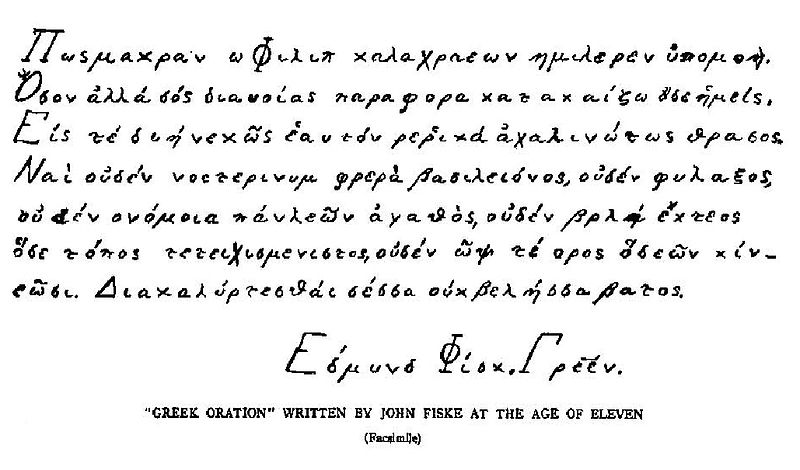 Πωςμακραν ω Φιλιπ καλαχραεων ημιλερεν ὑπομον.
Ὅσον ἀλλά σός διανοίας παραφορα κατακαίζω ὅσεἡμείς.
Εἰς τέ διήνεκῶς ἑαυτόν ἀχαλινώτως θρασος.
Ναὶ οὐδέν νοςτερινυμ φρερὰ βασιλειόνος, οὐδέν φυλαξος,
οὐδέν ονόμοια πάνλεῶν ἀγαθὸς, οὐδέν βρλή ἔκτεος
ὅδε τόπος τετειχισμενιστος, οὐδέν ὦψ τέ ορος ὅδεῶν κίν-
εῶσι. Διακαλύρτεσθάι σέσσα οὐκβελήσσα βατος.
Εδμυνδ Φίσκ. Γρέεν.
"GREEK ORATION" WRITTEN BY JOHN FISKE AT THE AGE OF ELEVEN
(Facsimile)